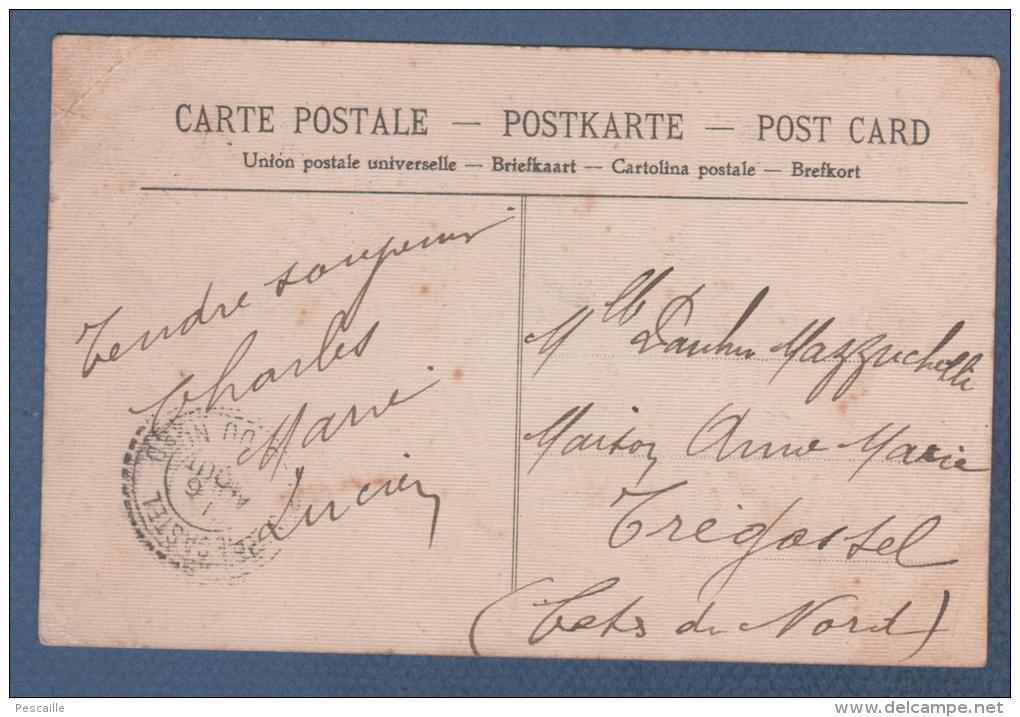 CARTE POSTALE — POSTKARTE — POST CARD
Union postale universelle — Briefkaart — Cartolina postale — Brefkort
Tendre souvenir
Charles
Marie
Lucien
Mlle Mazzuchelli
Maison Anne Marie
Trégastel
(Côtes du Nord)
CASTEL
DU NORD
AOUT
Pescaille
delcampe.net